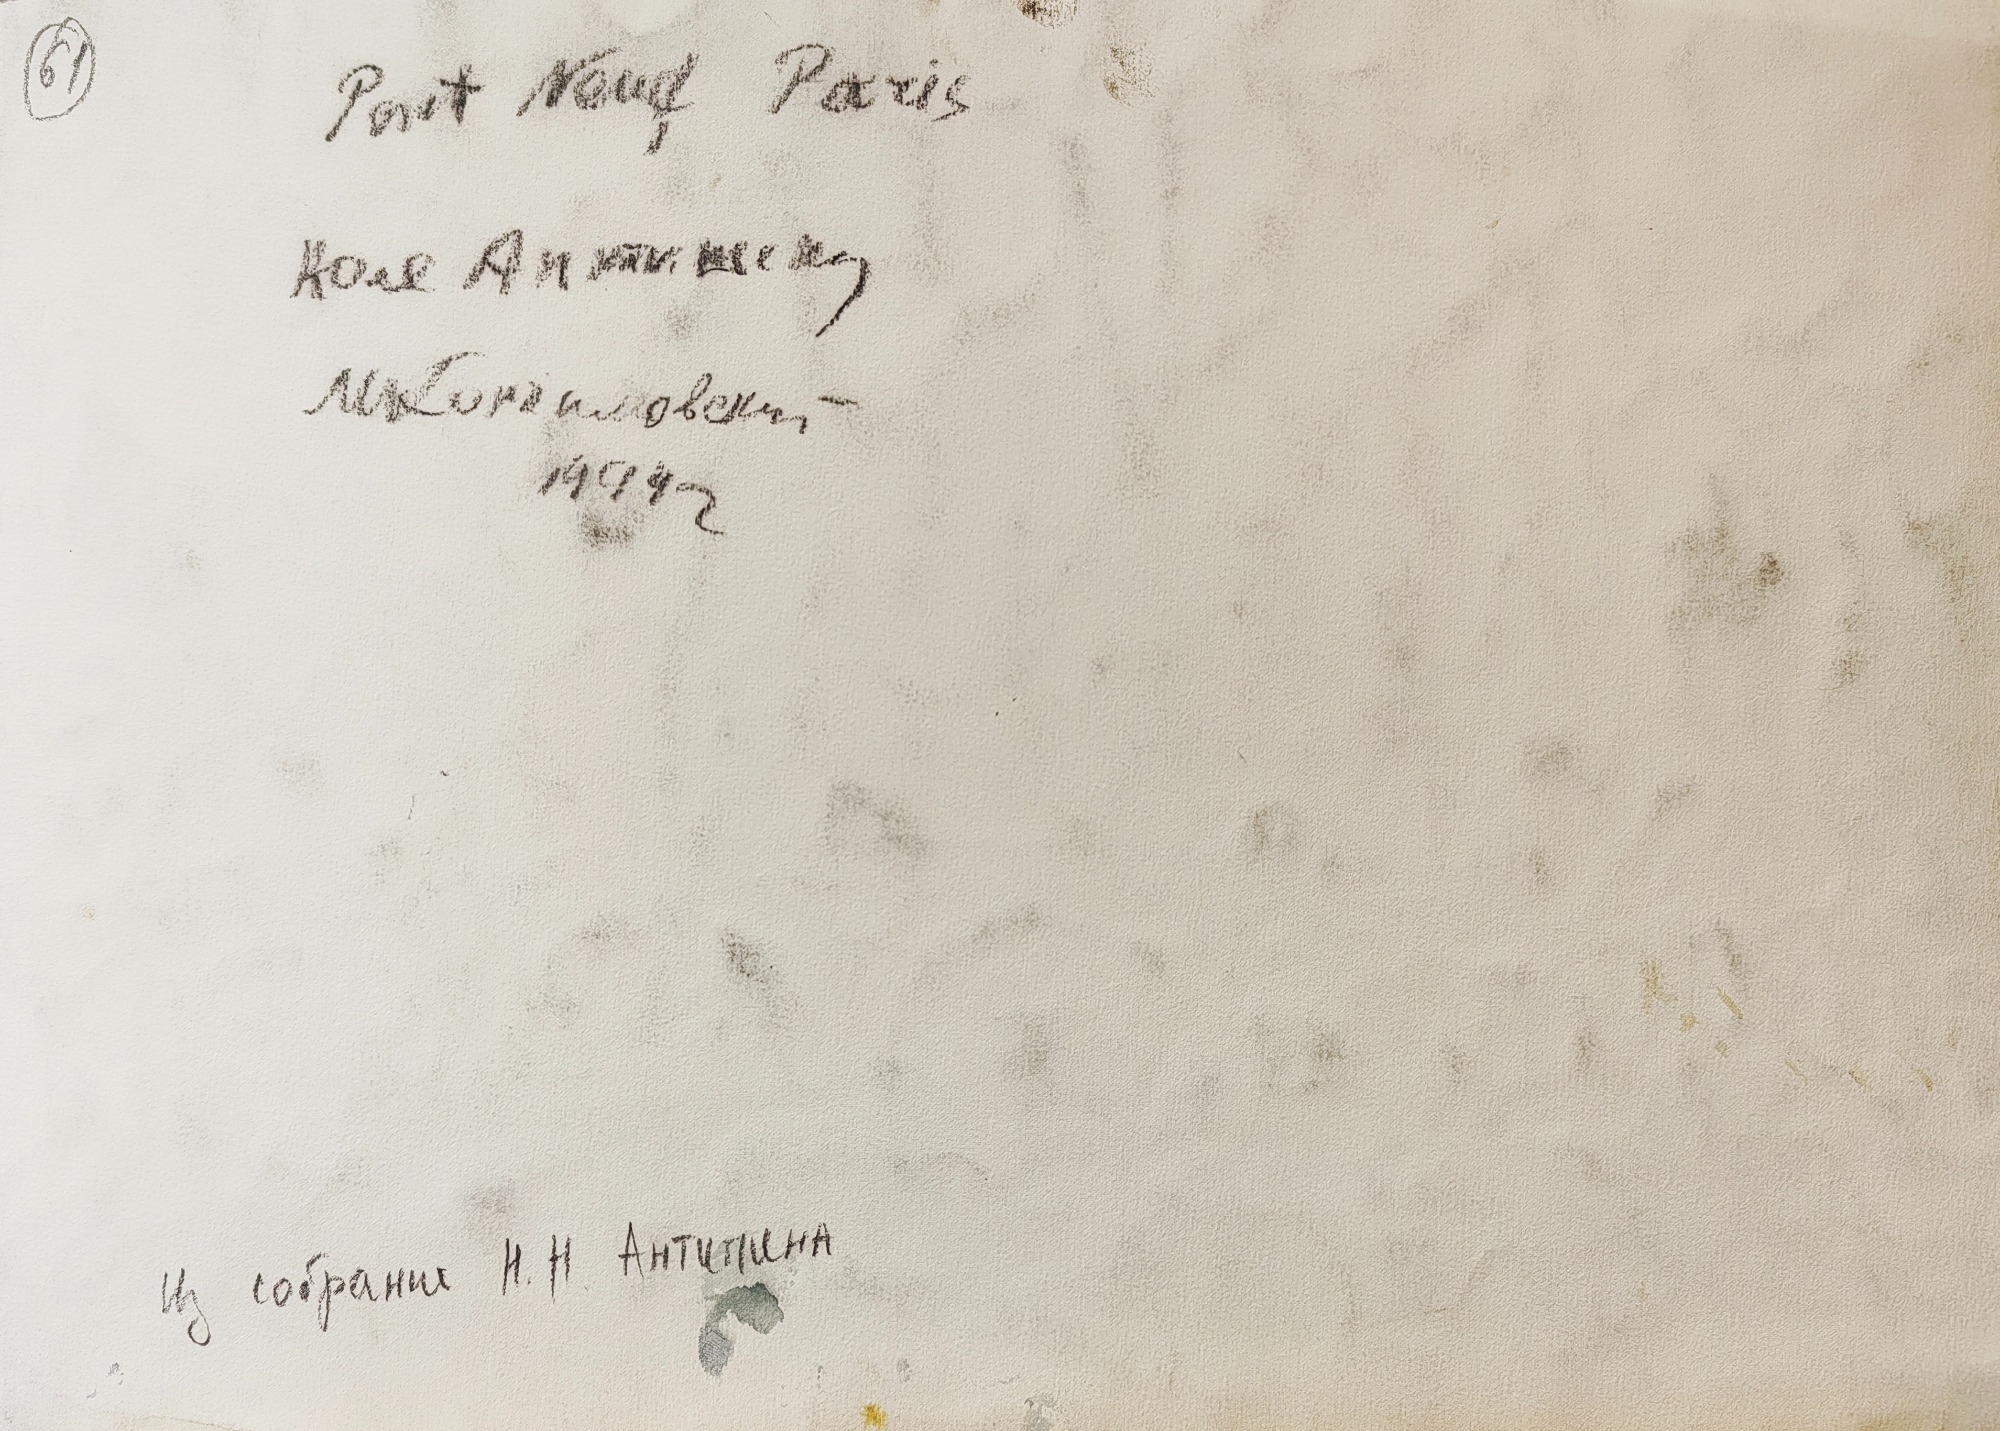 61
Pont Neuf Paris
Коле Антипину
М Кончаловский
1994 г
Из собрание Н.Н Антипина